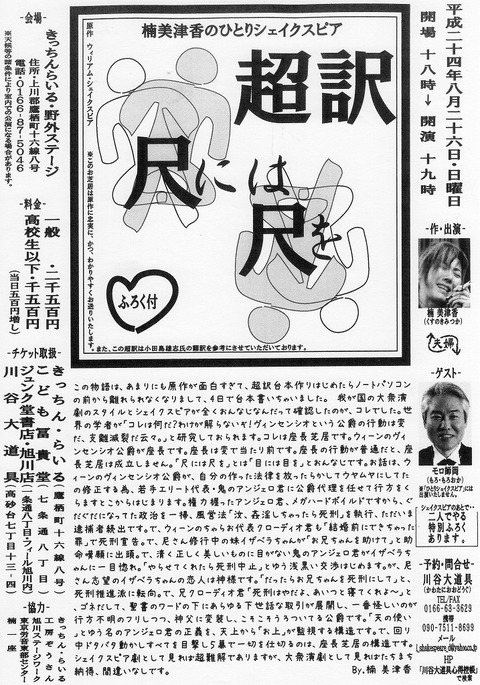 平成二十四年八月二十六日・日曜日
開場 十八時→ 開演 十九時
楠美津香のひとりシェイクスピア
超訳
尺には尺を
原作 ウィリアム・シェイクスピア
※このお芝居は原作に忠実に、かつ、わかりやすくお送りいたします。
ふろく付
また、この超訳は小田島雄志氏の翻訳を参考にさせていただいております。
-会場-
きっちんらいる・野外ステージ
住所・上川郡鷹栖町十六線八号
電話・0166-87-5046
※天候等の諸条件により室内での公演になる場合があります。
-料金-
一般 二千五百円
高校生以下・千五百円
(当日五百円増し)
-作・出演-
楠 美津香
(くすのきみつか)
夫婦
-ゲスト-
モロ師岡
(もろ・もろおか)
※「ひとりシェイクスピア」には
出演いたしません。
シェイクスピアのあとで・・
二人でやる
特別ふろく
あります。
-予約・問合せ-
川谷大道具
(かわたにおおどうぐ)
TEL/FAX
0166-63-3629
携帯
090-7511-8699
メール
i_shakespeare_@yahoo.co.jp
HP
「川谷大道具心得控帳」
で検索
-チケット取扱-
きっちん・らいる(鷹栖町十六線八号)
こども冨貴堂(七条通八丁目)
ジュンク堂書店・旭川店(一条通八丁目フィール旭川内)
川谷大道具(高砂台七丁目十三-四)
-協力-
きっちん・らいる
工房ぞうさん
旭川ステージワーク
東京労音東部センター
楠一座
この物語は、あまりにも原作が面白すぎて、超訳台本作りはじめたらノートパソコン
の前から離れられなくなりまして、4日で台本書いちゃいました。 我が国の大衆演
劇のスタイルとシェイクスピアが全くおんなじなんだって確認したのが、コレでした。世
界の学者が「コレは何だ?わけが解らないぞ!ヴィンセンシオという公爵の行動は突
だ、支離滅裂だ云々。」と研究しておられます。コレは座長芝居です。ウィーンのヴィ
ンセンシオ公爵が座長です。座長は変で当たり前です。座長の行動が普通だと、座
長芝居は成立しません。「尺には尺を」とは「目には目を」とおんなじです。お話は、ウ
ィーンのヴィンセンシオ公爵が、自分の作った法律を放ったらかしてウヤムヤにしてた
の修正する為、若手エリート代表・鬼のアンジェロ君に公爵代理を任せて行方をく
らますとこからはじまります。権力握ったアンジェロ君、メガハードボイルドですから、ぐ
だぐだになってた政治を一新、風営法「汝、姦淫しちゃったら死刑」を執行、ただいま
逮捕者続出です。で、ウィーンのちゃらお代表クローディオ君も「結婚前にできちゃった
罪」で死刑宣告。で、尼さん修行中の妹イザベラちゃんが「お兄ちゃんを助けて」と助
命嘆願に出頭。で、清く正しく美しいものに目がない鬼のアンジェロ君がイザベラち
ゃんに一目惚れ。「やらせてくれたら死刑中止」とゆう浅黒い交渉はじめますが、尼
さん志望のイザベラちゃんの恋人は神様です。「だったらお兄ちゃんを死刑にして」と、
死刑推進派に転向。で、兄クローディオ君「死刑はやだよ、あいつと寝てくれよ〜」と、
ゴネだして、聖書のワードの下にあらゆる下世話な取引が展開し、一番怪しいのが
行方不明のフリしつつ、神父に変装し、こうこうこうろついてる公爵です。「天の使い」
とゆう名のアンジェロ君の正義を、天上から「お上」が監視する構造です。で、回り
中ドタバタ動かしすべてを目撃し5幕で一切を仕切るのは、座長芝居の構造です。
シェイクスピア劇として見れば超難解でありますが、大衆演劇として見ればたちまち
納得、間違いなしです。 By.楠 美津香